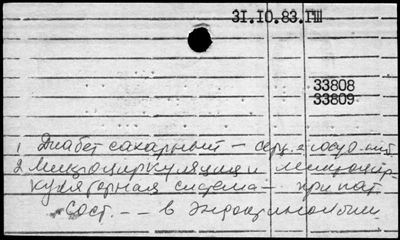 31.10.83.ГШ
33808
33809
1 Диабет сахарный – серд. сосуд.
2. Микроциркуляция и микроцир-
куляторная система – при пат.
сост. – – в эндокринологии